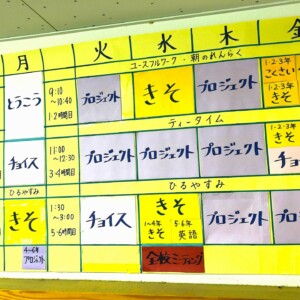 月 火 水 木 金
ユースフルワーク・朝のれんらく
とうこう
9:10
〜10:40
1・2時間目
プロジェクト
きそ
プロジェクト
1・2・3年
こくさい
1・2・3年
きそ
ティータイム
チョイス
11:00
〜12:30
3・4時間目
プロジェクト
プロジェクト
プロジェクト
1・2・3年
きそ
チョ
ひるやすみ
ひるやすみ
きそ
1:30
〜3:00
5・6時間目
チョイス
きそ
1〜4年
きそ
5・6年
英語
プロジェクト
プロ
4〜6年
プロジェクト
全校ミーティング